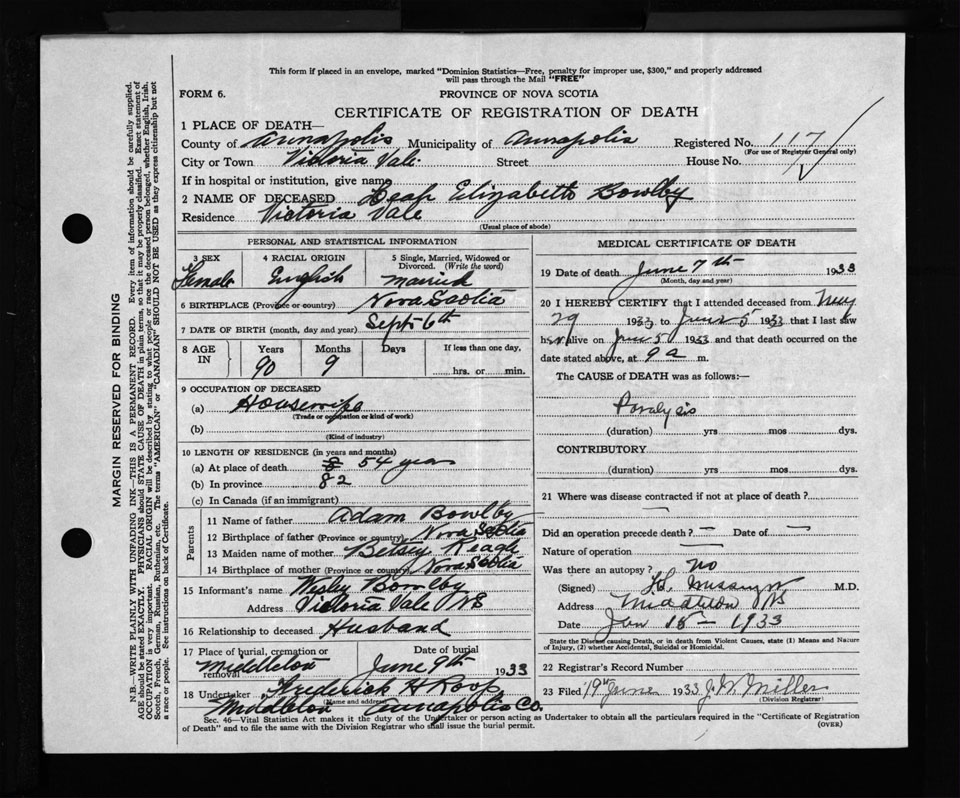 This form if placed in an envelope, marked "Dominion Statistics—Free, penalty for improper use, $300," and properly addressed
will pass through the Mail "FREE"
FORM 6.
PROVINCE OF NOVA SCOTIA
CERTIFICATE OF REGISTRATION OF DEATH
1 PLACE OF DEATH—
County of Annapolis Municipality of Annapolis Registered No. 117
(For use of Registrar General only)
City or Town Victoria Vale Street House No.
If in hospital or institution, give name
2 NAME OF DECEASED Leah Elizabeth Bowlby
Residence Victoria Vale
(Usual place of abode)
PERSONAL AND STATISTICAL INFORMATION
3 SEX 4 RACIAL ORIGIN 5 Single, Married, Widowed or
Divorced. (Write the word)
Female English Married
6 BIRTHPLACE (Province or country) Nova Scotia
7 DATE OF BIRTH (month, day and year) Sept 6th
8 AGE IN Years Months Days If less than one day,
90 9 hrs. or min.
9 OCCUPATION OF DECEASED
(a) Housewife
(Trade or occupation or kind of work)
(b)
(Kind of industry)
10 LENGTH OF RESIDENCE (in years and months)
(a) At place of death 54 years
(b) In province 82
(c) In Canada (if an immigrant)
Parents
11 Name of father Adam Bowlby
12 Birthplace of father (Province or country) Nova Scotia
13 Maiden name of mother Betsey Neagh
14 Birthplace of mother (Province or country) Nova Scotia
15 Informant's name Wesley Bowlby
Address Victoria Vale NS
16 Relationship to deceased Husband
17 Place of burial, cremation or removal Date of burial
Middleton June 9th 1933
18 Undertaker Frederick H Roop
(Name and address)
Middleton Annapolis Co.
MEDICAL CERTIFICATE OF DEATH
19 Date of death June 7th 1933
(Month, day and year)
20 I HEREBY CERTIFY that I attended deceased from May
29 1933 to June 5 1933 that I last saw
her alive on June 5 1933 and that death occurred on the
date stated above, at 9 a m.
The CAUSE of DEATH was as follows:—
Paralysis
(duration) yrs mos dys.
CONTRIBUTORY
(duration) yrs mos dys.
21 Where was disease contracted if not at place of death?
Did an operation precede death? — Date of —
Nature of operation —
Was there an autopsy? no
(Signed) M.D.
Address Middleton NS
Date Jan 18th 1933
State the Disease causing Death, or in death from Violent Causes, state (1) Means and Nature
of Injury, (2) whether Accidental, Suicidal or Homicidal.
22 Registrar's Record Number
23 Filed 19th June 1933 J. W. Miller
(Division Registrar)
Sec. 46—Vital Statistics Act makes it the duty of the Undertaker or person acting as Undertaker to obtain all the particulars required in the "Certificate of Registration
of Death" and to file the same with the Division Registrar who shall issue the burial permit.
(OVER)
MARGIN RESERVED FOR BINDING
N.B.—WRITE PLAINLY WITH UNFADING INK—THIS IS A PERMANENT RECORD. Every item of information should be carefully supplied.
AGE should be stated EXACTLY. PHYSICIANS should STATE CAUSE OF DEATH in plain terms, so that it may be properly classified. Exact statement of
OCCUPATION is very important. RACIAL ORIGIN will be described by stating to what people or race the deceased person belonged, whether English, Irish,
Scotch, French, German, Russian, Ruthenian, etc. The terms "AMERICAN" or "CANADIAN" SHOULD NOT BE USED as they express citizenship but not
a race or people. See instructions on back of Certificate.